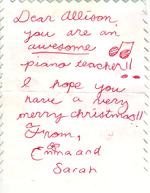 Dear Allison,
you are an
awesome
piano teacher!!
I hope you
have a very
merry christmas!!
From,
Emma and
Sarah